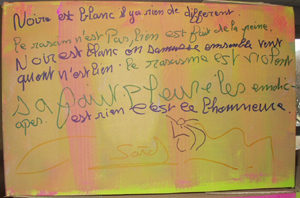 Noire est blanc & ya rien de different
le rasism n'est Pas bien est fait de la peine.
Noire est blanc on sammuse ensemble vent
quont n'est bien. le rasisme est vrément
sa fait Pleuré les
est rien c'est la bhonneure.
Saïd